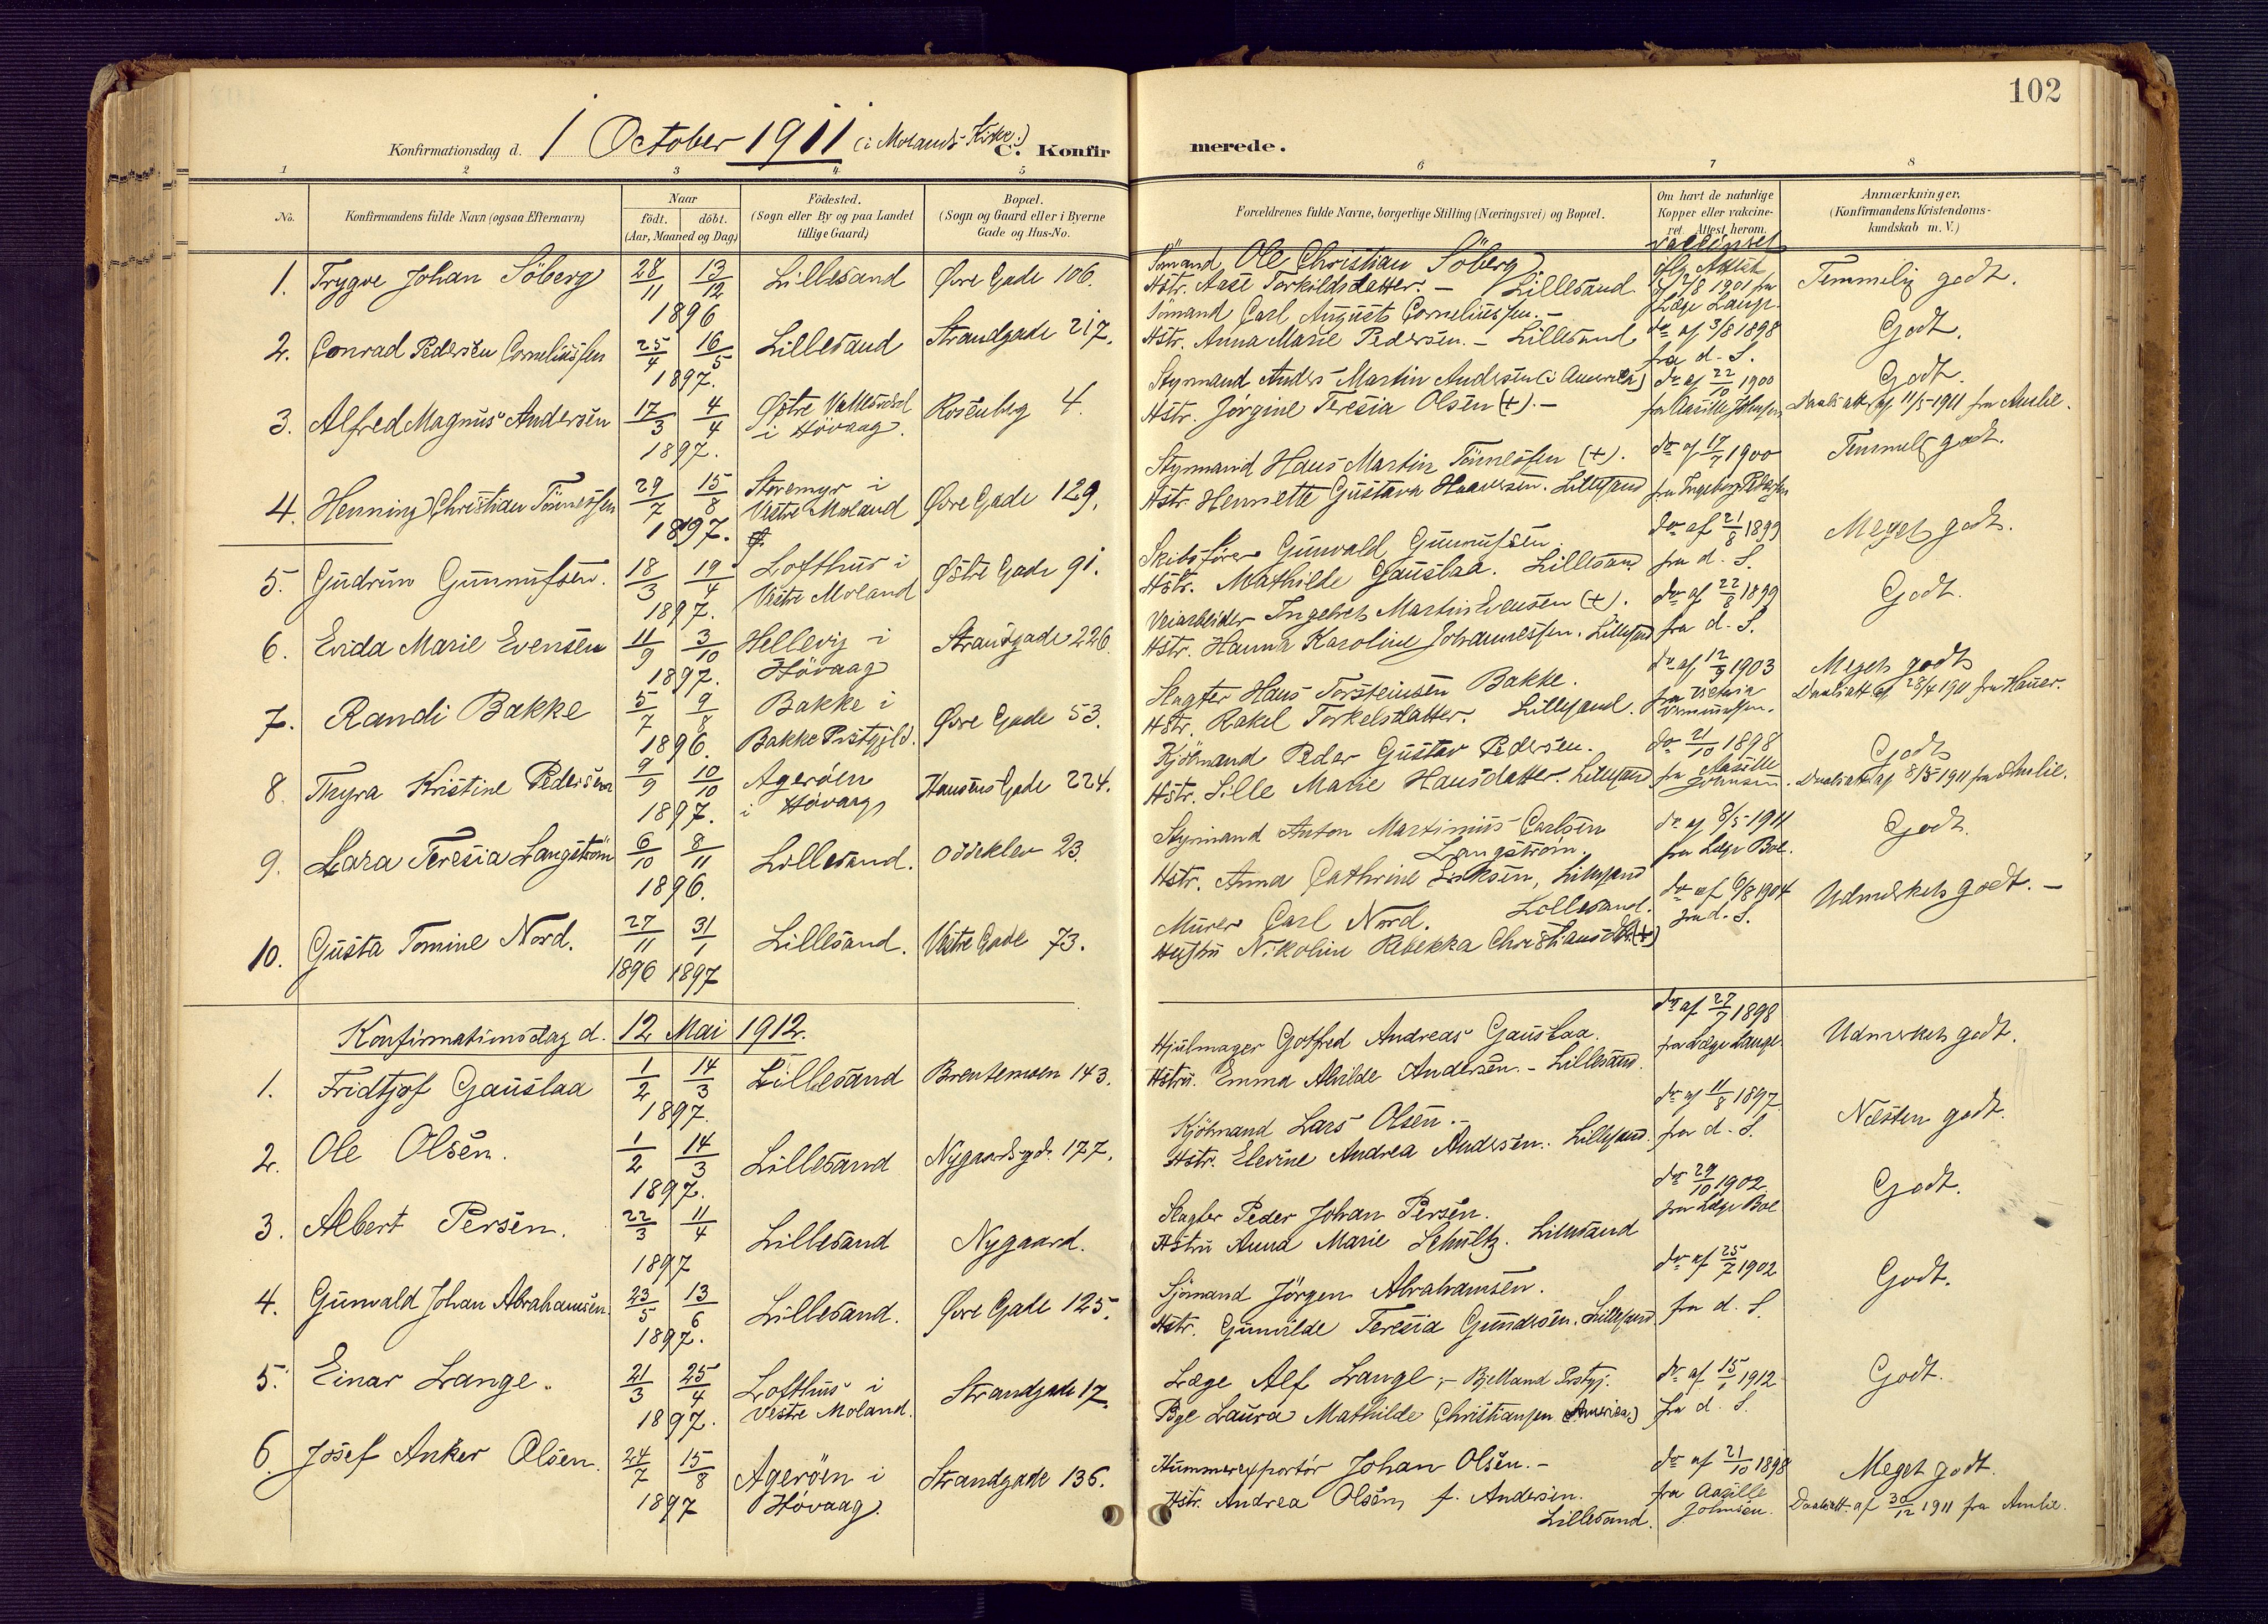 102
Konfirmationsdag d. 1 October 1911 (i Molands Kirke.) C. Konfirmerede.
1 2 3 4 5 6 7 8
No. Konfirmandens fulde Navn (ogsaa Efternavn) Naar födt. döbt. (Aar, Maaned og Dag) Födested. (Sogn eller By og paa Landet tillige Gaard) Bopæl. (Sogn og Gaard eller i Byerne Gade og Hus-No. Forældrenes fulde Navne, borgerlige Stilling (Næringsvei) og Bopæl. Om havt de naturlige Kopper eller vakcineret. Attest herom. Anmærkninger. (Konfirmandens Kristendomskundskab m. V.)
1. Trygve Johan Söberg 28/11 13/12 1896 Lillesand Øvre Gade 106.
Sömand Ole Christian Söberg
Hstr. Aase Torkildsdatter. – Lillesand
vaccineret iflg. Attest af 2/8 1901 fra Læge Lange.
Temmelig godt.
2. Conrad Pedersen Corneliussen 25/4 16/5 1897. Lillesand Strandgade 217.
Sömand Carl August Corneliussen. –
Hstr. Anna Marie Pedersen. – Lillesand
do af 3/8 1898 fra d. S.
Godt.
3. Alfred Magnus Andersen 17/3 4/4 1897. Østre Vallesverd i Hövaag. Rosenberg 4.
Styrmand Anders Martin Andersen (i Amerika)
Hstr. Jörgine Teresia Olsen (+). –
do af 22/10 1900 fra Aasille Johnsen
Godt.
Daabsatt. af 11/5 1911 fra Amlie.
4. Henning Christian Tönnessen 29/7 15/8 1897. Storemyr i Vestre Moland Øvre Gade 129.
Styrmand Hans Martin Tönnessen (+).
Hstr. Henriette Gustava Haavesen. Lillesand
do af 17/7 1900 fra Ingeborg Pedersen
Temmel. godt.
5. Gudrun Gunnufsen. 18/3 19/4 1897. Lofthus i Vestre Moland Østre Gade 91.
Skibsförer Gunvald Gunnufsen
Hstr. Mathilde Gauslaa. Lillesand
do af 21/8 1899 fra d. S.
Meget godt.
6. Evida Marie Evensen 11/9 3/10 1897. Hellevig i Hövaag Strandgade 226.
Veiarbeider Ingebret Martin Evensen (+).
Hstr. Hanna Karoline Johannessen. Lillesand
do af 22/8 1899 fra d. S.
Godt.
7. Randi Bakke 5/7 9/8 1896. Bakke i Bakke Prstgjld. Øvre Gade 53.
Slagter Hans Torsteinsen Bakke.
Hstr. Rakel Torkelsdatter. Lillesand.
do af 12/9 1903 fra
Meget godt
Daabsatt. af 28/4 1911 fra
8. Thyra Kristine Pedersen 9/9 10/10 1897. Ageröen i Hövaag Hansens Gade 224.
Kjöbmand Peder Gustav Pedersen.
Hstr. Lille Marie Hansdatter. Lillesand
do 21/10 1898 fra Aasille Johnsen
Godt
Daabsatt af 8/5 1911 fra Amlie.
9. Lara Teresia Langström 6/10 8/11 1896. Lillesand. Oddeklev 23.
Styrmand Anton Martinius Carlsen Langström.
Hstr. Anna Cathrine Eriksen, Lillesand
do af 8/5 1911 fra Læge Boe.
Godt.
10. Gusta Tomine Nord. 27/11 1896 31/1 1897 Lillesand. Vestre Gade 73.
Murer Carl Nord. Lillesand.
Hustru Nikoline Rebekka Christiansdtr. (+)
do af 6/8 1904 fra d. S.
Udmerket godt. –
Konfirmationsdag d. 12 Mai 1912.
1. Fridtjof Gauslaa 1/2 14/3 1897. Lillesand Brentemoen 143.
Hjulmager Gotfred Andreas Gauslaa.
Hstru. Emma Alvilde Andersen. – Lillesand.
do af 27/7 1898 fra Læge Lange
Udmerket godt.
2. Ole Olsen. 1/2 14/3 1897. Lillesand Nygaardsgd. 177.
Kjöbmand Lars Olsen. –
Hstr. Elevine Andrea Andersen. Lillesand.
do af 11/8 1897 fra d. S.
Næsten godt.
3. Albert Persen. 22/3 11/4 1897 Lillesand Nygaard.
Slagter Peder Johan Persen.
Hstru Anna Marie Schultz. Lillesand
do 29/10 1902 fra Læge Boe
Godt.
4. Gunvald Johan Abrahamsen. 23/5 13/6 1897. Lillesand. Øvre Gade 125.
Sjömand Jörgen Abrahamsen.
Hstr. Gunvilde Teresia Gundersen. Lillesand
do af 25/7 1902 fra d. S.
Godt.
5. Einar Lange. 21/3 25/4 1897. Lofthus i Vestre Moland. Strandgade 17.
Læge Alf Lange; – Bjelland Prstgj.
Pge Laura Mathilde Christiansen (Amerika)
do af 15/1 1912 fra d. S.
Godt.
6. Josef Anker Olsen. 24/7 15/8 1897 Ageröen i Hövaag. Strandgade 136.
Hummerexportör Johan Olsen. –
Hstr. Andrea Olsen, f. Andersen. Lillesand.
do af 21/10 1898 fra Aasille Johnsen.
Meget godt.
Daabsatt. af 30/12 1911 fra Amlie.